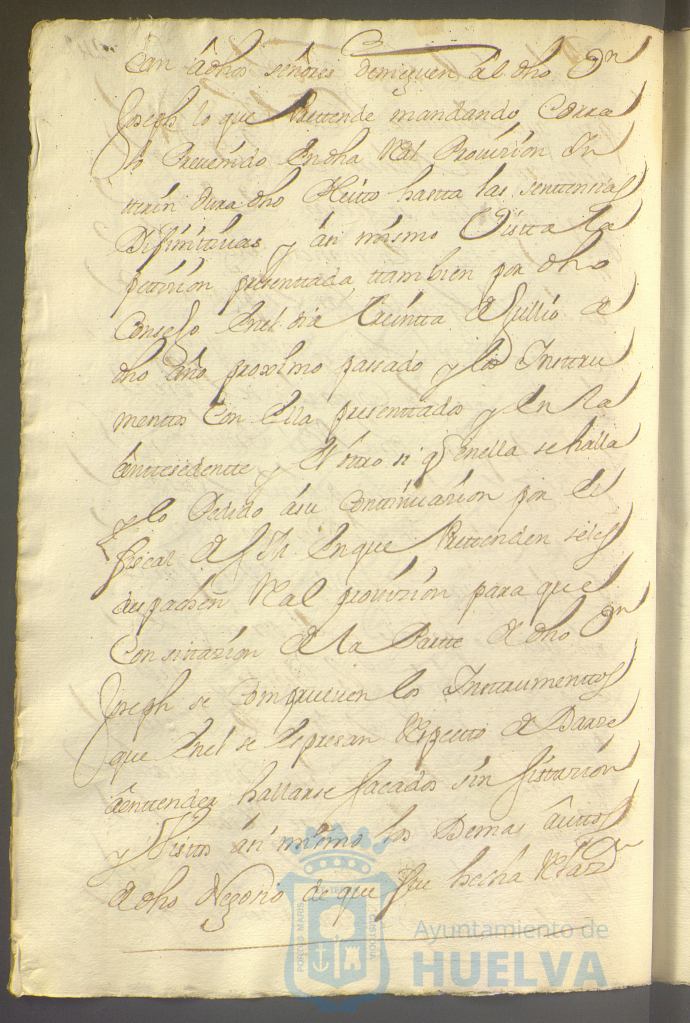 Can âdhos señores denieguen âl dho Dn
Joseph lo que Prettende mandando Corra
lo Prevenido Endha Real Provision In
tterin dura dho Pleitto hastta las senttencias
Difinittivas y âsi mismo Vistta la
peticion presenttada ttambien por dho
Consejo Enel dia treintta de Jullio de
dho año proximo passado y los Insttru
mentos Con Ella presenttados y En la
Anttesedentte y El ôtro si q Enella se halla
y lo Pedido âsu Conttinuacion por El
fiscal de Enque Prettenden seles
despachen Real provizion para que
Con sittazion de la Partte de dho Dn
Joseph se Comprueven los Insttrumenttos
que Enel se Espresan Respectto de Darse
âenttender hallarse sacados sin sittazion
y Vistos âsi mismo los Demas âuttos
de dho Negozio de que fue hecha Relazon
PORTUS MARIS
CUSTODIA
Ayuntamiento de
HUELVA